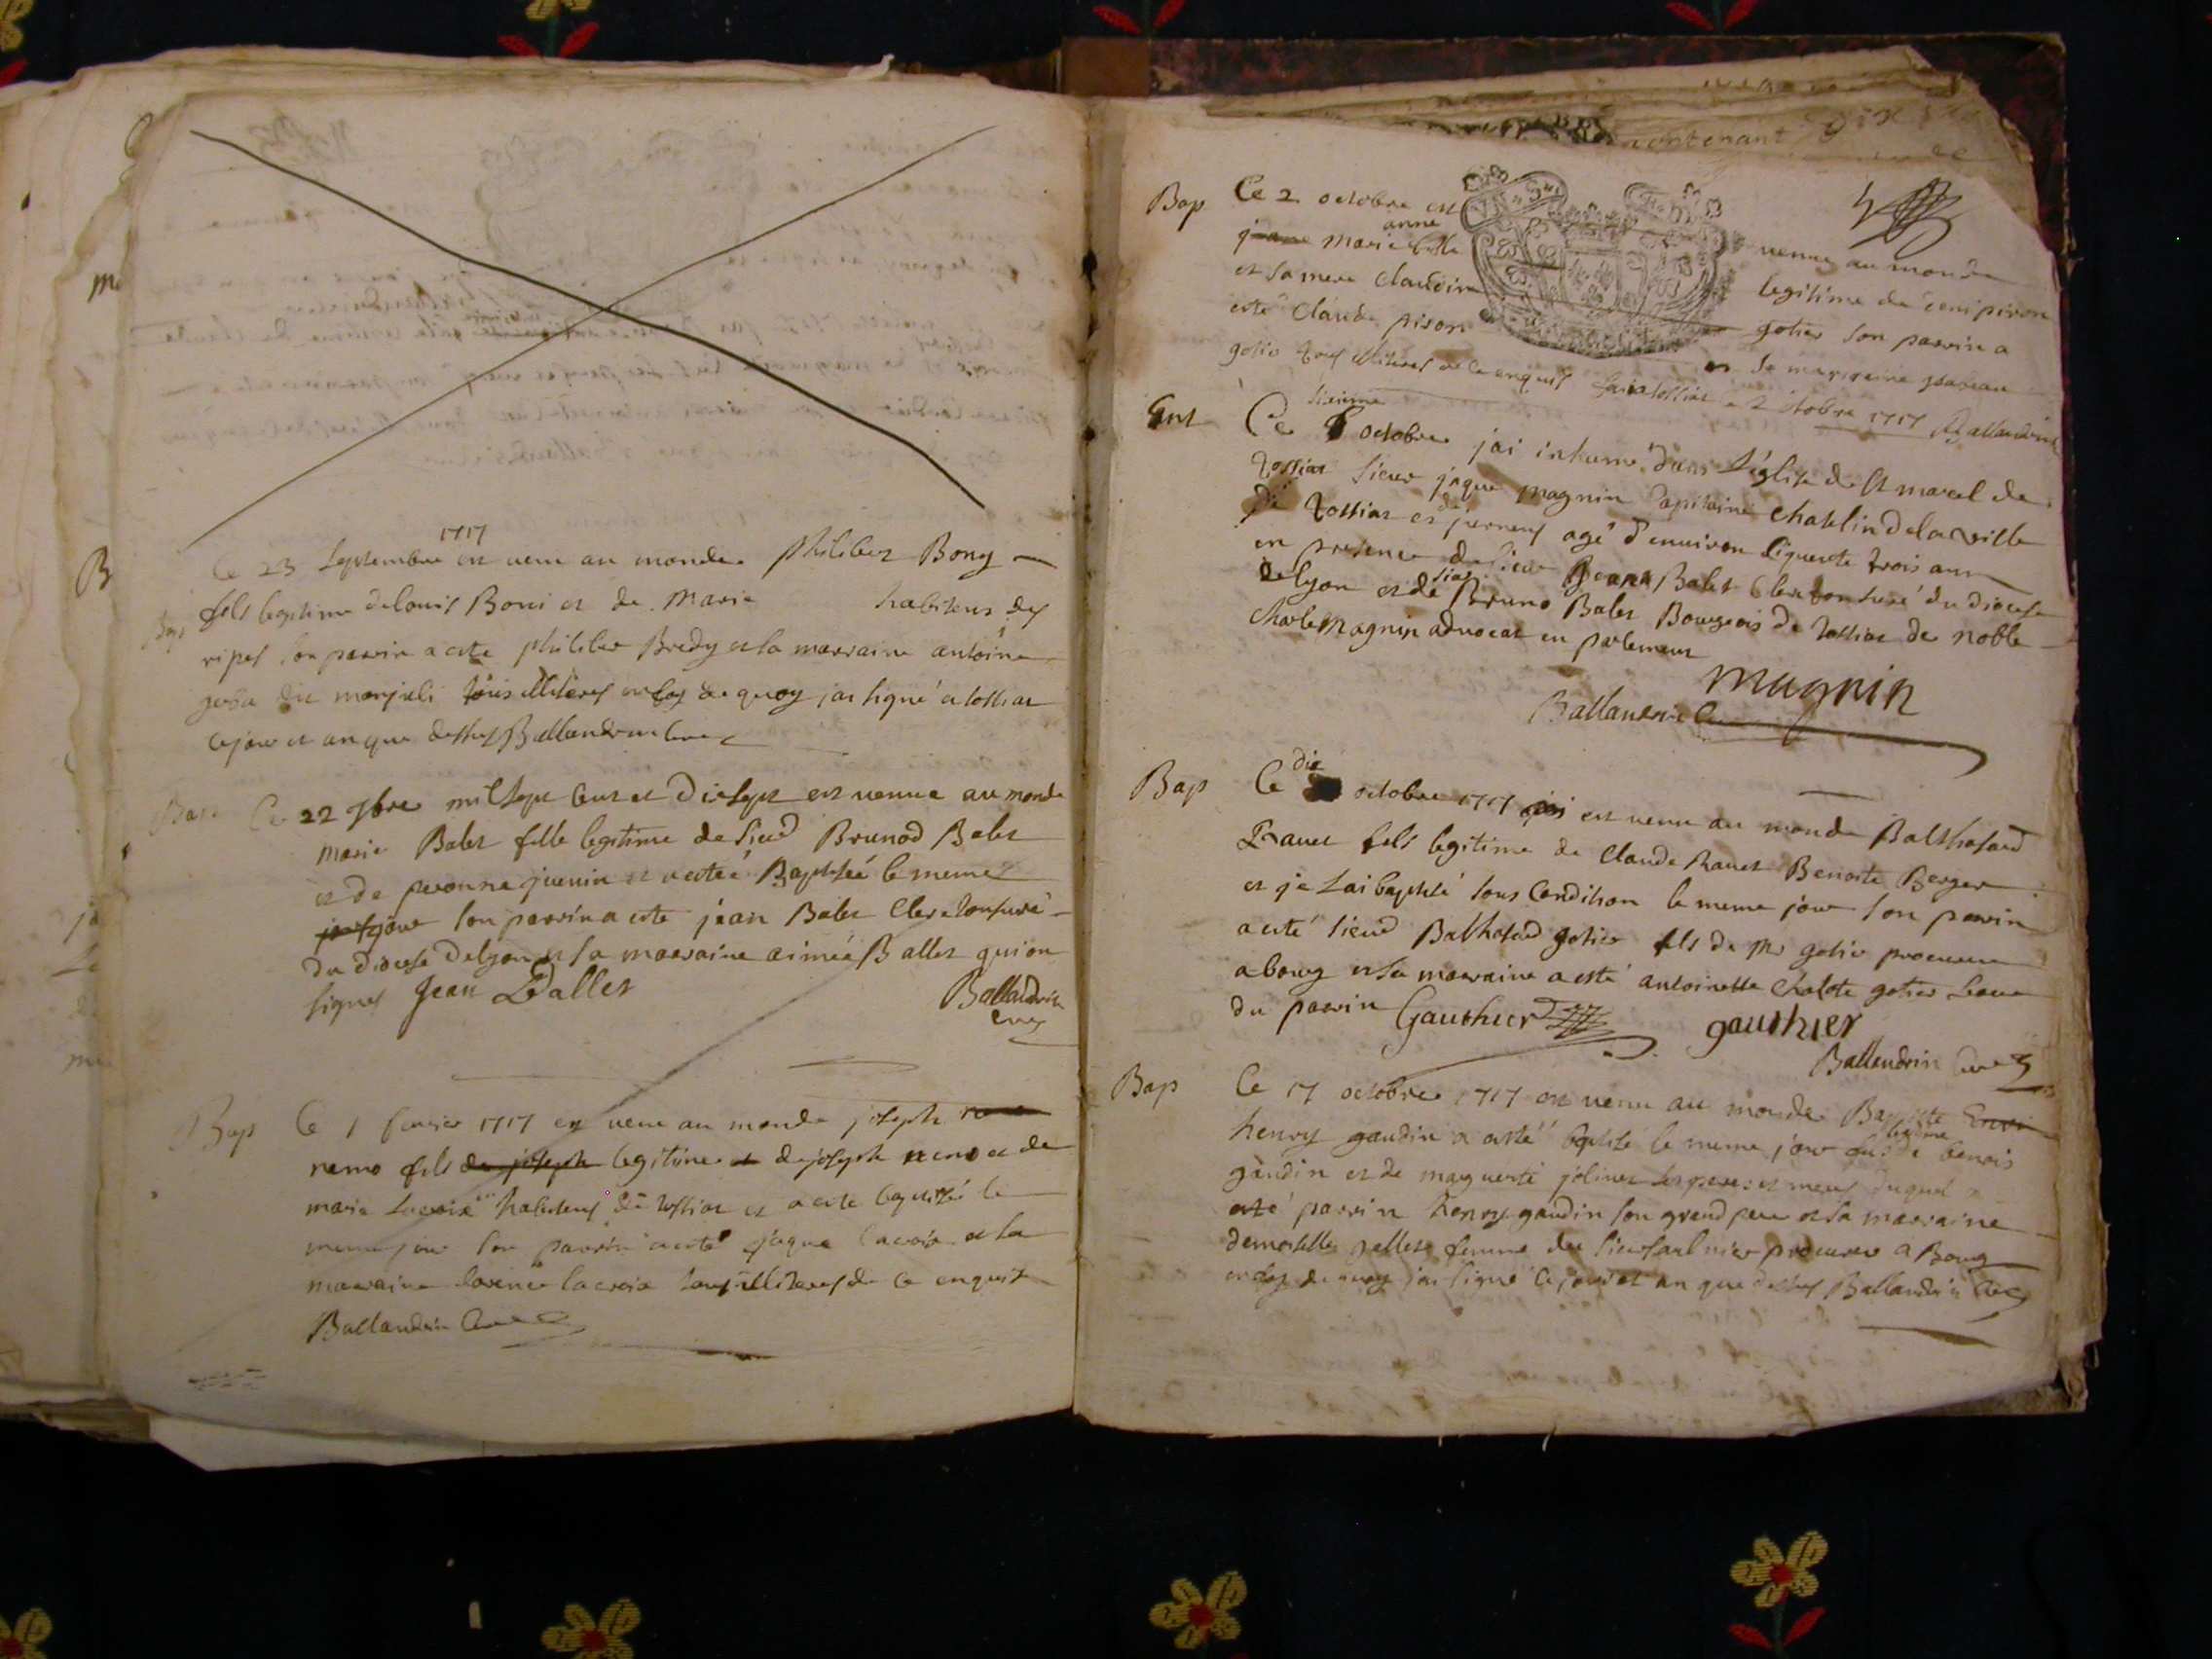 1717
Ce 23 Septembre est venu au monde philiber Bony
Bap
fils legitime de louis Boni et de Marie habitens des
ripes son parrin a este philiber Bredy et la marraine antoine
du tous illiteres de quoy jai signé a tossiat
ce jour et an que dessus Ballandrin cure
Bap Ce 22 7bre mil sept cens et disept est venue au monde
marie Balet fille legitime de sieur Brunod Balet
et de peronne juenin et a esteé Baptiseé le meme
jour son parrin a este jean Balet Clerc tonsuré
du diocese de lyon et sa marraine aimeé Ballet qui on
signes Jean Ballet
Ballandrin
cure
Bap Ce 1 1717 est venu au monde joseph
nemo fils de joseph legitime de joseph nemo et de
marie lacroix habitens de tossiat et a este baptisé le
meme jour son parrin a esté jaque lacroix et la
marraine lacroix tous illiteres de ce enquis
Ballandrin Cure
contenant dix
Bap Ce 2 octobre est venue au monde
anne
marie fille legitime de piron
et sa mere claudine gotier son parrin a
esté Claude pison et sa marraine
gotie tous illiteres de ce enquis fait a tossiat ce 2 octobre 1717 Ballandrin
Ent
sixieme
Ce octobre jai inhumé dans l'église de st marcel de
tossiat sieur jaque magnin Capitaine chatelin de la ville
de tossiat et journens agé d'environ siquente trois ans
en presence de sieur Jean Balet Clerc tonsuré du diocese
de lyon et de sieur Bruno Balet Bourgeois de tossiat de noble
Charle Magnin advocat en parlement
magnin
Ballandrin Cure
Bap Ce dix octobre 1717 est venu au monde Balthasard
Ravet fils legitime de Claude Ravet Benoite Berger
et je lai baptisé sous Condition le meme jour son parrin
a esté sieur Balthasard gotier fils de Mr gotie procureur
a bourg et sa marraine a esté antoinette Chalote gotier seur
du parrin Gauthier gauthier
Ballandrin Cure
Bap Ce 17 octobre 1717 est venu au monde Baptiste
legitime
henry gaudin a esté baptisé le meme jour fils de benois
gaudin et de marguerite jolivet ses pere et mere duquel a
esté parrin henry gaudin son grand pere et la marraine
demoiselle femme du sieur procureur a Bourg
en foy de quoy jai signé ce jour et an que dessus Ballandrin Cure